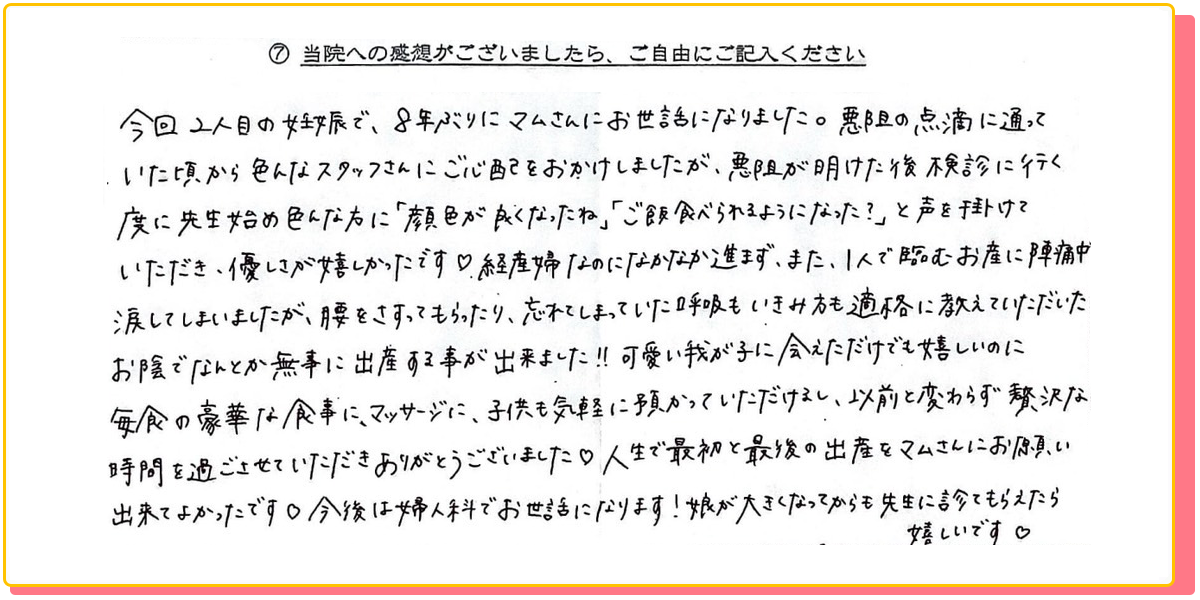 ⑦ 当院への感想がございましたら、ご自由にご記入ください
今回2人目の妊娠で、8年ぶりにマムさんにお世話になりました。悪阻の点滴に通って
いた頃から色んなスタッフさんにご心配をおかけしましたが、悪阻が明けた後検診に行く
度に先生始め色んな方に「顔色が良くなったね」「ご飯食べられるようになった?」と声を掛けて
いただき、優しさが嬉しかったです♡経産婦なのになかなか進まず、また、1人で臨むお産に陣痛中
涙してしまいましたが、腰をさすってもらったり、忘れてしまっていた呼吸もいきみ方も適格に教えていただいた
お陰でなんとか無事に出産する事が出来ました!!可愛い我が子に会えただけでも嬉しいのに
毎食の豪華な食事に、マッサージに、子供も気軽に預かっていただけるし、以前と変わらず贅沢な
時間を過ごさせていただきありがとうございました♡人生で最初と最後の出産をマムさんにお願い
出来てよかったです♡今後は婦人科でお世話になります!娘が大きくなってからも先生に診てもらえたら
嬉しいです♡